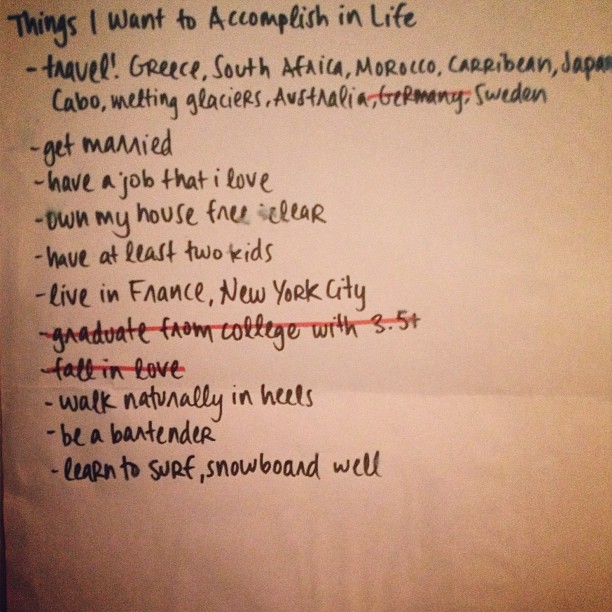 Things I Want to Accomplish in Life
- travel! Greece, South Africa, Morocco, Carribean, Japan
Cabo, melting glaciers, Australia, Germany, Sweden
- get married
- have a job that i love
- own my house free & clear
- have at least two kids
- live in France, New York City
- graduate from college with 3.5+
- fall in love
- walk naturally in heels
- be a bartender
- learn to surf, snowboard well